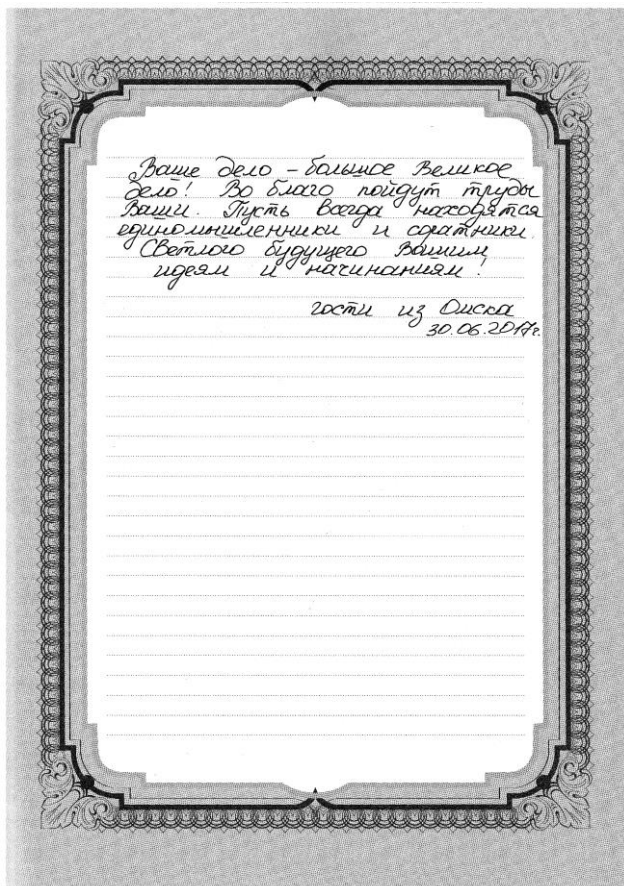 Ваше дело – большое Великое
дело! Во благо пойдут труды
Ваши. Пусть всегда находятся
единомышленники и соратники.
Светлого будущего Вашим
идеям и начинаниям!
гости из Омска
30.06.2017г.